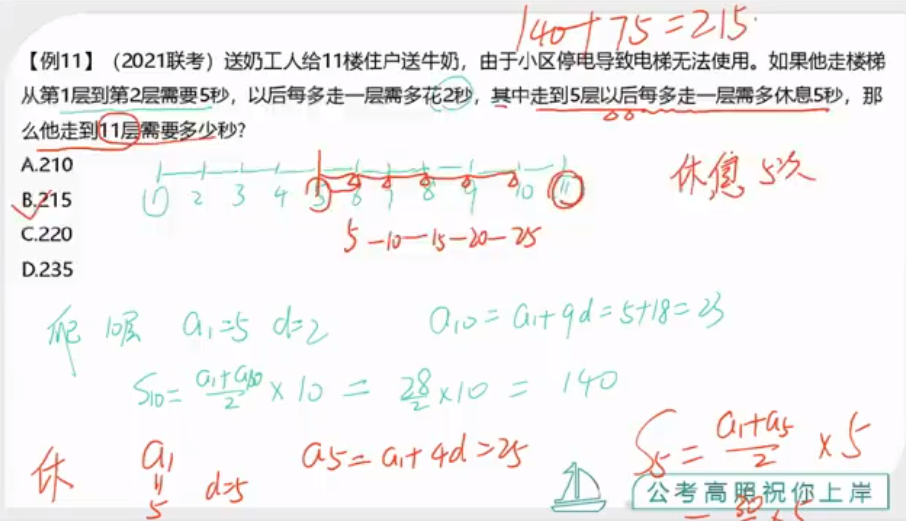 140+75=215.
【例11】（2021联考）送奶工人给11楼住户送牛奶，由于小区停电导致电梯无法使用。如果他走楼梯
从第1层到第2层需要5秒，以后每多走一层需多花2秒，其中走到5层以后每多走一层需多休息5秒，那
么他走到11层需要多少秒?
A.210
B.215
C.220
D.235
1 2 3 4 5 6 7 8 9 10 11
休息 5次
5-10-15-20-25
爬 10层 a₁=5 d=2 a₁₀=a₁+9d=5+18=23
S₁₀=(a₁+a₁₀)/2×10=28/2×10=140
休 a₁=5 d=5 a₅=a₁+4d=25 S₅=(a₁+a₅)/2×5
=30/2×5
公考高照祝你上岸